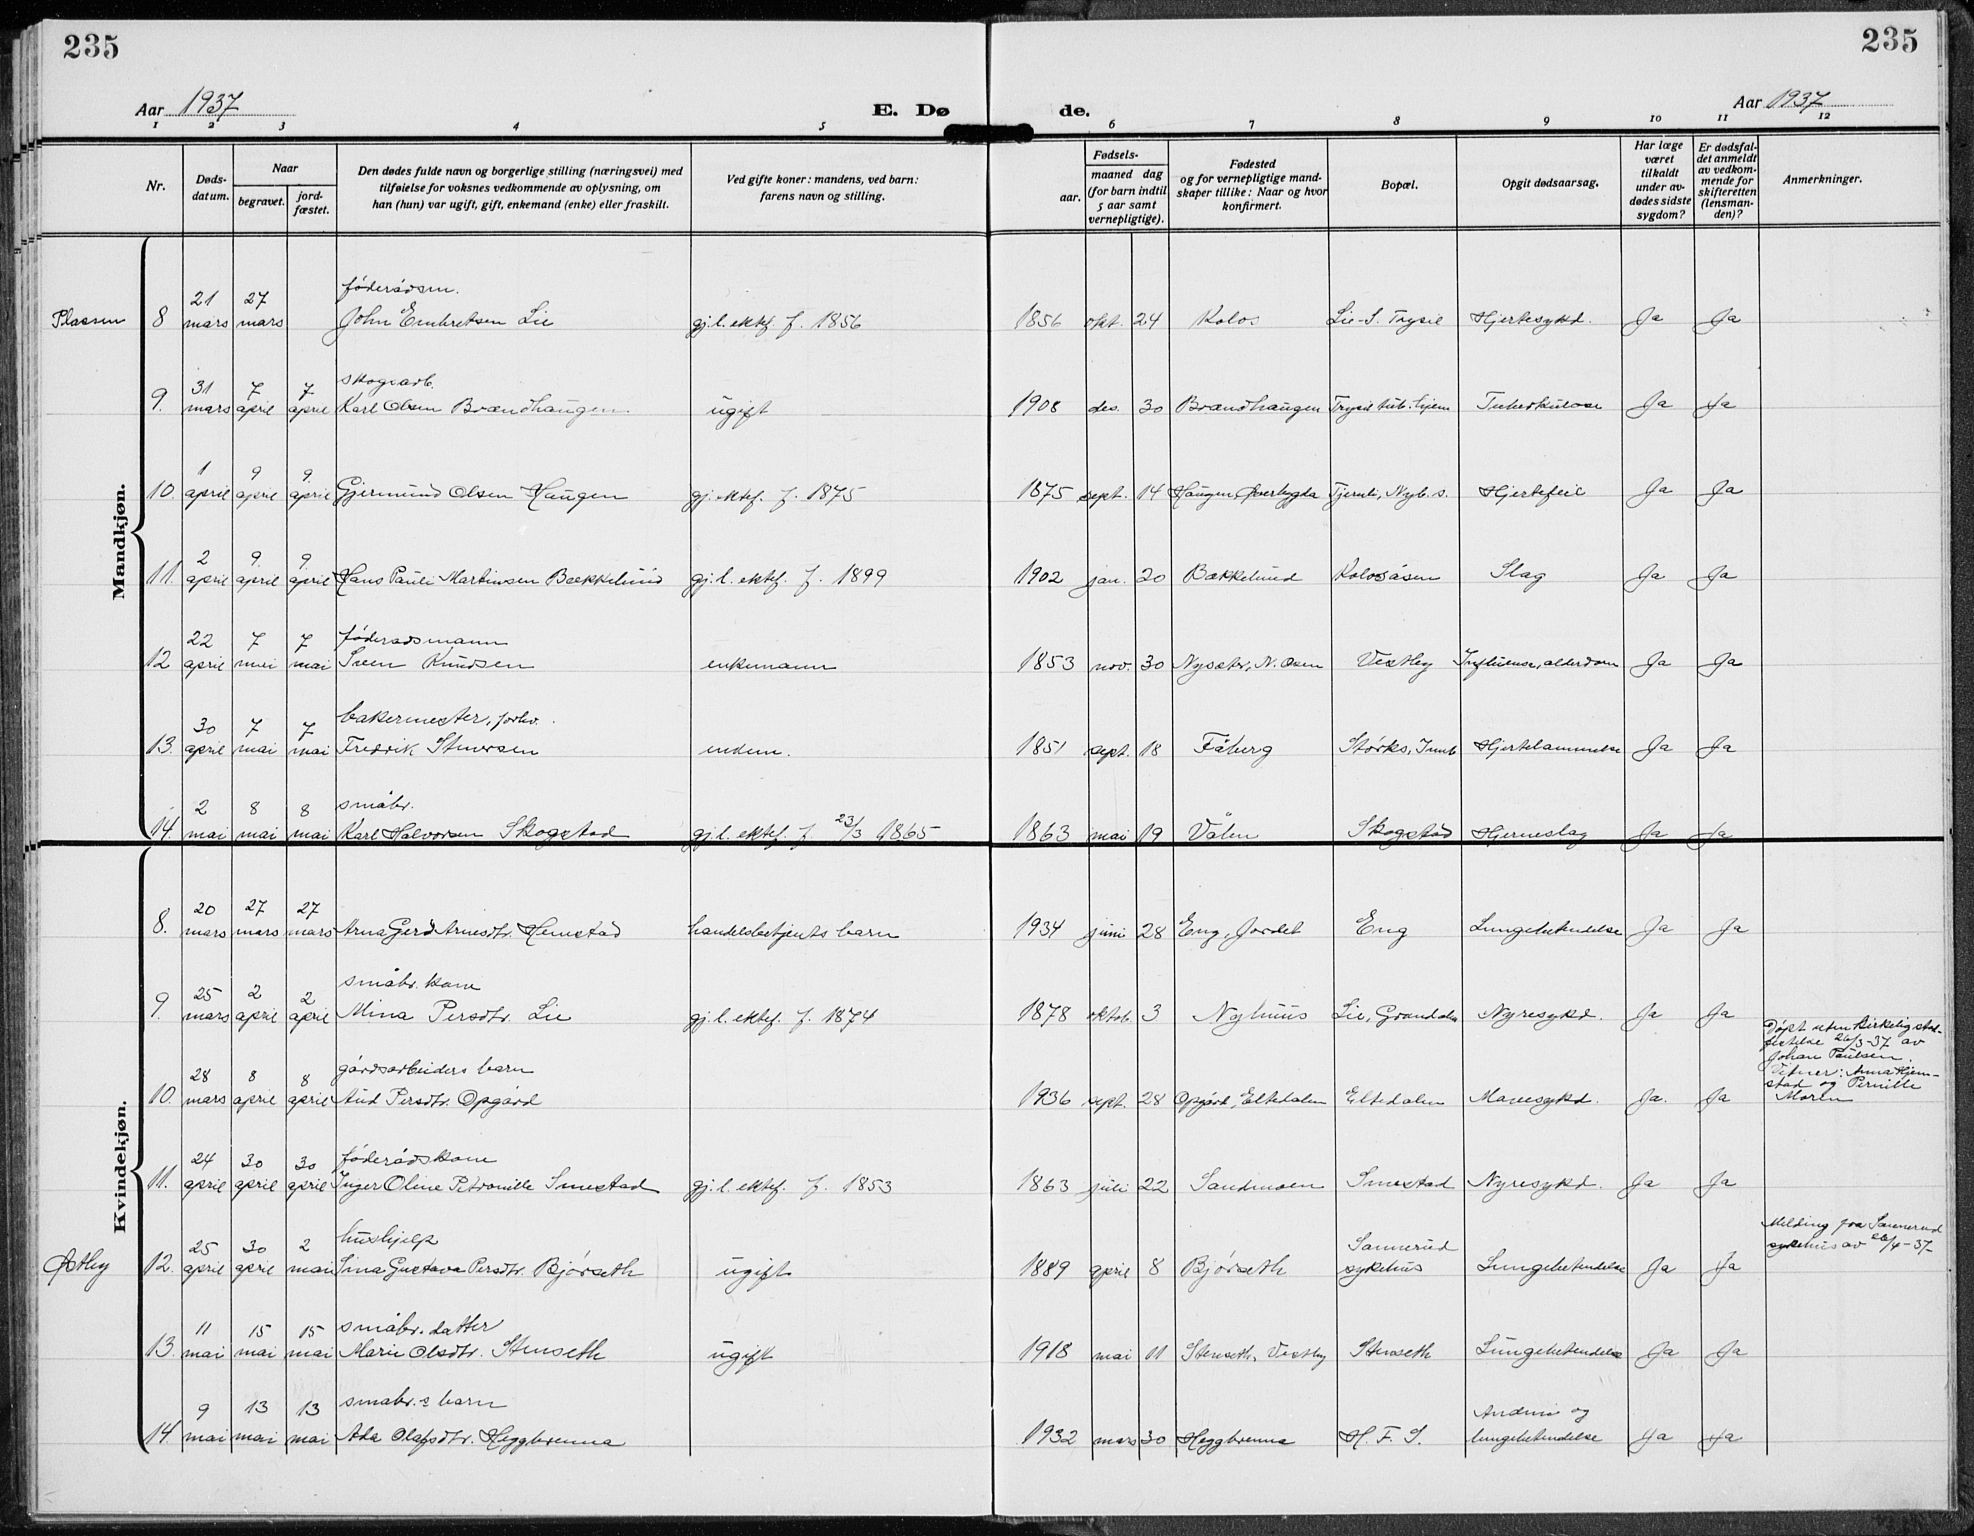 235
235
Aar 1937
E. Dø
de.
Aar 1937
1 2 3 4 5 6 7 8 9 10 11 12
Nr.
Døds-
datum.
Naar
begravet.
jord-
fæstet.
Den dødes fulde navn og borgerlige stilling (næringsvei) med
tilføielse for voksnes vedkommende av oplysning, om
han (hun) var ugift, gift, enkemand (enke) eller fraskilt.
Ved gifte koner: mandens, ved barn:
farens navn og stilling.
Fødsels-
aar.
maaned dag
(for barn indtil
5 aar samt
vernepligtige).
Fødested
og for vernepligtige mand-
skaper tillike: Naar og hvor
konfirmert.
Bopæl.
Opgit dødsaarsag.
Har læge
været
tilkaldt
under av-
dødes sidste
sygdom?
Er dødsfal-
det anmeldt
av vedkom-
mende for
skifteretten
(lensman-
den)?
Anmerkninger.
Mandkjøn.
21 27 føderådsm.
Plassen 8 mars mars John Embretsen Lie gj. l. ektef. f. 1856 1856 okt. 24 Kolos Lie-S. Trysil Hjertesykd. Ja Ja
31 7 7 skogsarb.
9. mars april april Karl Olsen Brændhaugen ugift 1908 des. 30 Brændhaugen Trysil tub. hjem Tuberkulose Ja Ja
1 9 9
10. april april april Gjermund Olsen Haugen gj. ektef. f. 1875 1875 sept. 14 Haugen, Øverbygda Tjernli, Nyb. s. Hjertefeil Ja Ja
2 9 9
11. april april april Hans Pauli Martinsen Bækkelund gj. l. ektef. f. 1899 1902 jan. 20 Bækkelund Kolosåsen Slag Ja Ja
22 7 7 føderadsmann
12 april mai mai Sven Knudsen enkemann 1853 nov. 30 Nysæter, N. Osen Vestby Influensa, alderdom Ja Ja
30 7 7 bakermester, forhv.
13. april mai mai Fredrik Stenersen enkem. 1851 sept. 18 Fåberg Størks, Innb Hjertelammelse Ja Ja
2 8 8 småbr.
14. mai mai mai Karl Halvorsen Skogstad gj. l. ektef. f. 23/3 1865 1863 mai 19 Vålen Skogstad Hjerneslag Ja Ja
Kvindekjøn.
20 27 27
8. mars mars mars Arna Gerd Arnesdtr. Hemstad handelsbetjents barn 1934 juni 28 Eng, Jordet Eng Lungebetendelse Ja Ja
25 2 2 småbr. kone
9. mars april april Mina Persdtr. Lie gj. l. ektef. f. 1874 1878 oktob. 3 Nyhuus Lie, Grøndalen Nyresykd. Ja Ja
28 8 8 gårdsarbeiders barn
10. mars april april Aud Persdtr. Opgård 1936 sept. 28 Opgård, Eltdalen Eltedalen Mavesykd. Ja. Ja
Døpt uten kirkelig stad-
festelse 26/3-37 av
Johan Paulsen.
Vitner: Anna Hjem-
stad og Pernille
Moren
24 30 30 føderådskone
11. april april april Inger Oline Petronille Smestad gj. l. ektef. f. 1853 1863 juli 22 Sandmoen Smestad Nyresykd. Ja Ja
25 30 2 hushjelp
Østby 12. april april mai Sina Gustava Persdtr. Bjørseth ugift 1889 april 8 Bjørseth Sannerud sykehus Lungebetendelse Ja Ja
Melding fra Sannerud
sykehus av 26/4-37
11 15 15 småbr. datter
13. mai mai mai Marie Olsdtr. Stenseth ugift 1918 mai 11 Stenseth, Vestby Stenseth Lungebetendelse Ja Ja
9 13 13 småbr.s barn
14. mai mai mai Ada Olafsdtr. Heggbrenna 1932 mars 30 Heggbrenna H. F. S. og lungebetendelse Ja Ja